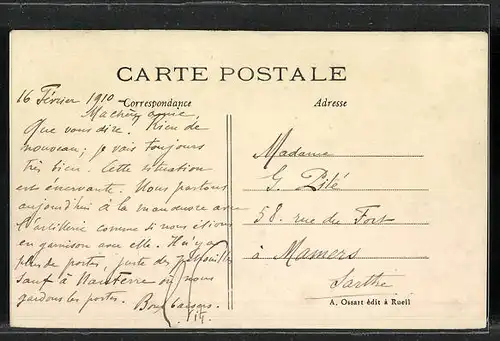 CARTE POSTALE
Correspondance
Adresse
16 Février 1910 -
Ma chère amie.
Que vous dire. Rien de
nouveau; je vais toujours
très bien. Cette situation
est énervante. Nous partons
aujourd'hui à la manœuvre avec
l'artillerie comme si nous étions
en garnison avec elle. Il n'y a
plus de postes, juste des patrouilles
sauf à Nanterre où nous
gardons les portes. Bons baisers.
Madame
G. Pité
58. rue du Fort
à Mamers
Sarthe
A. Ossart édit à Rueil